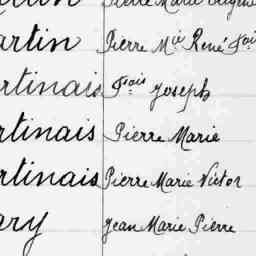 Pierre Marie
artin Pierre Mie René Fois
rtinais Fois Joseph
rtinais Pierre Marie
rtinais Pierre Marie Victor
ary Jean Marie Pierre